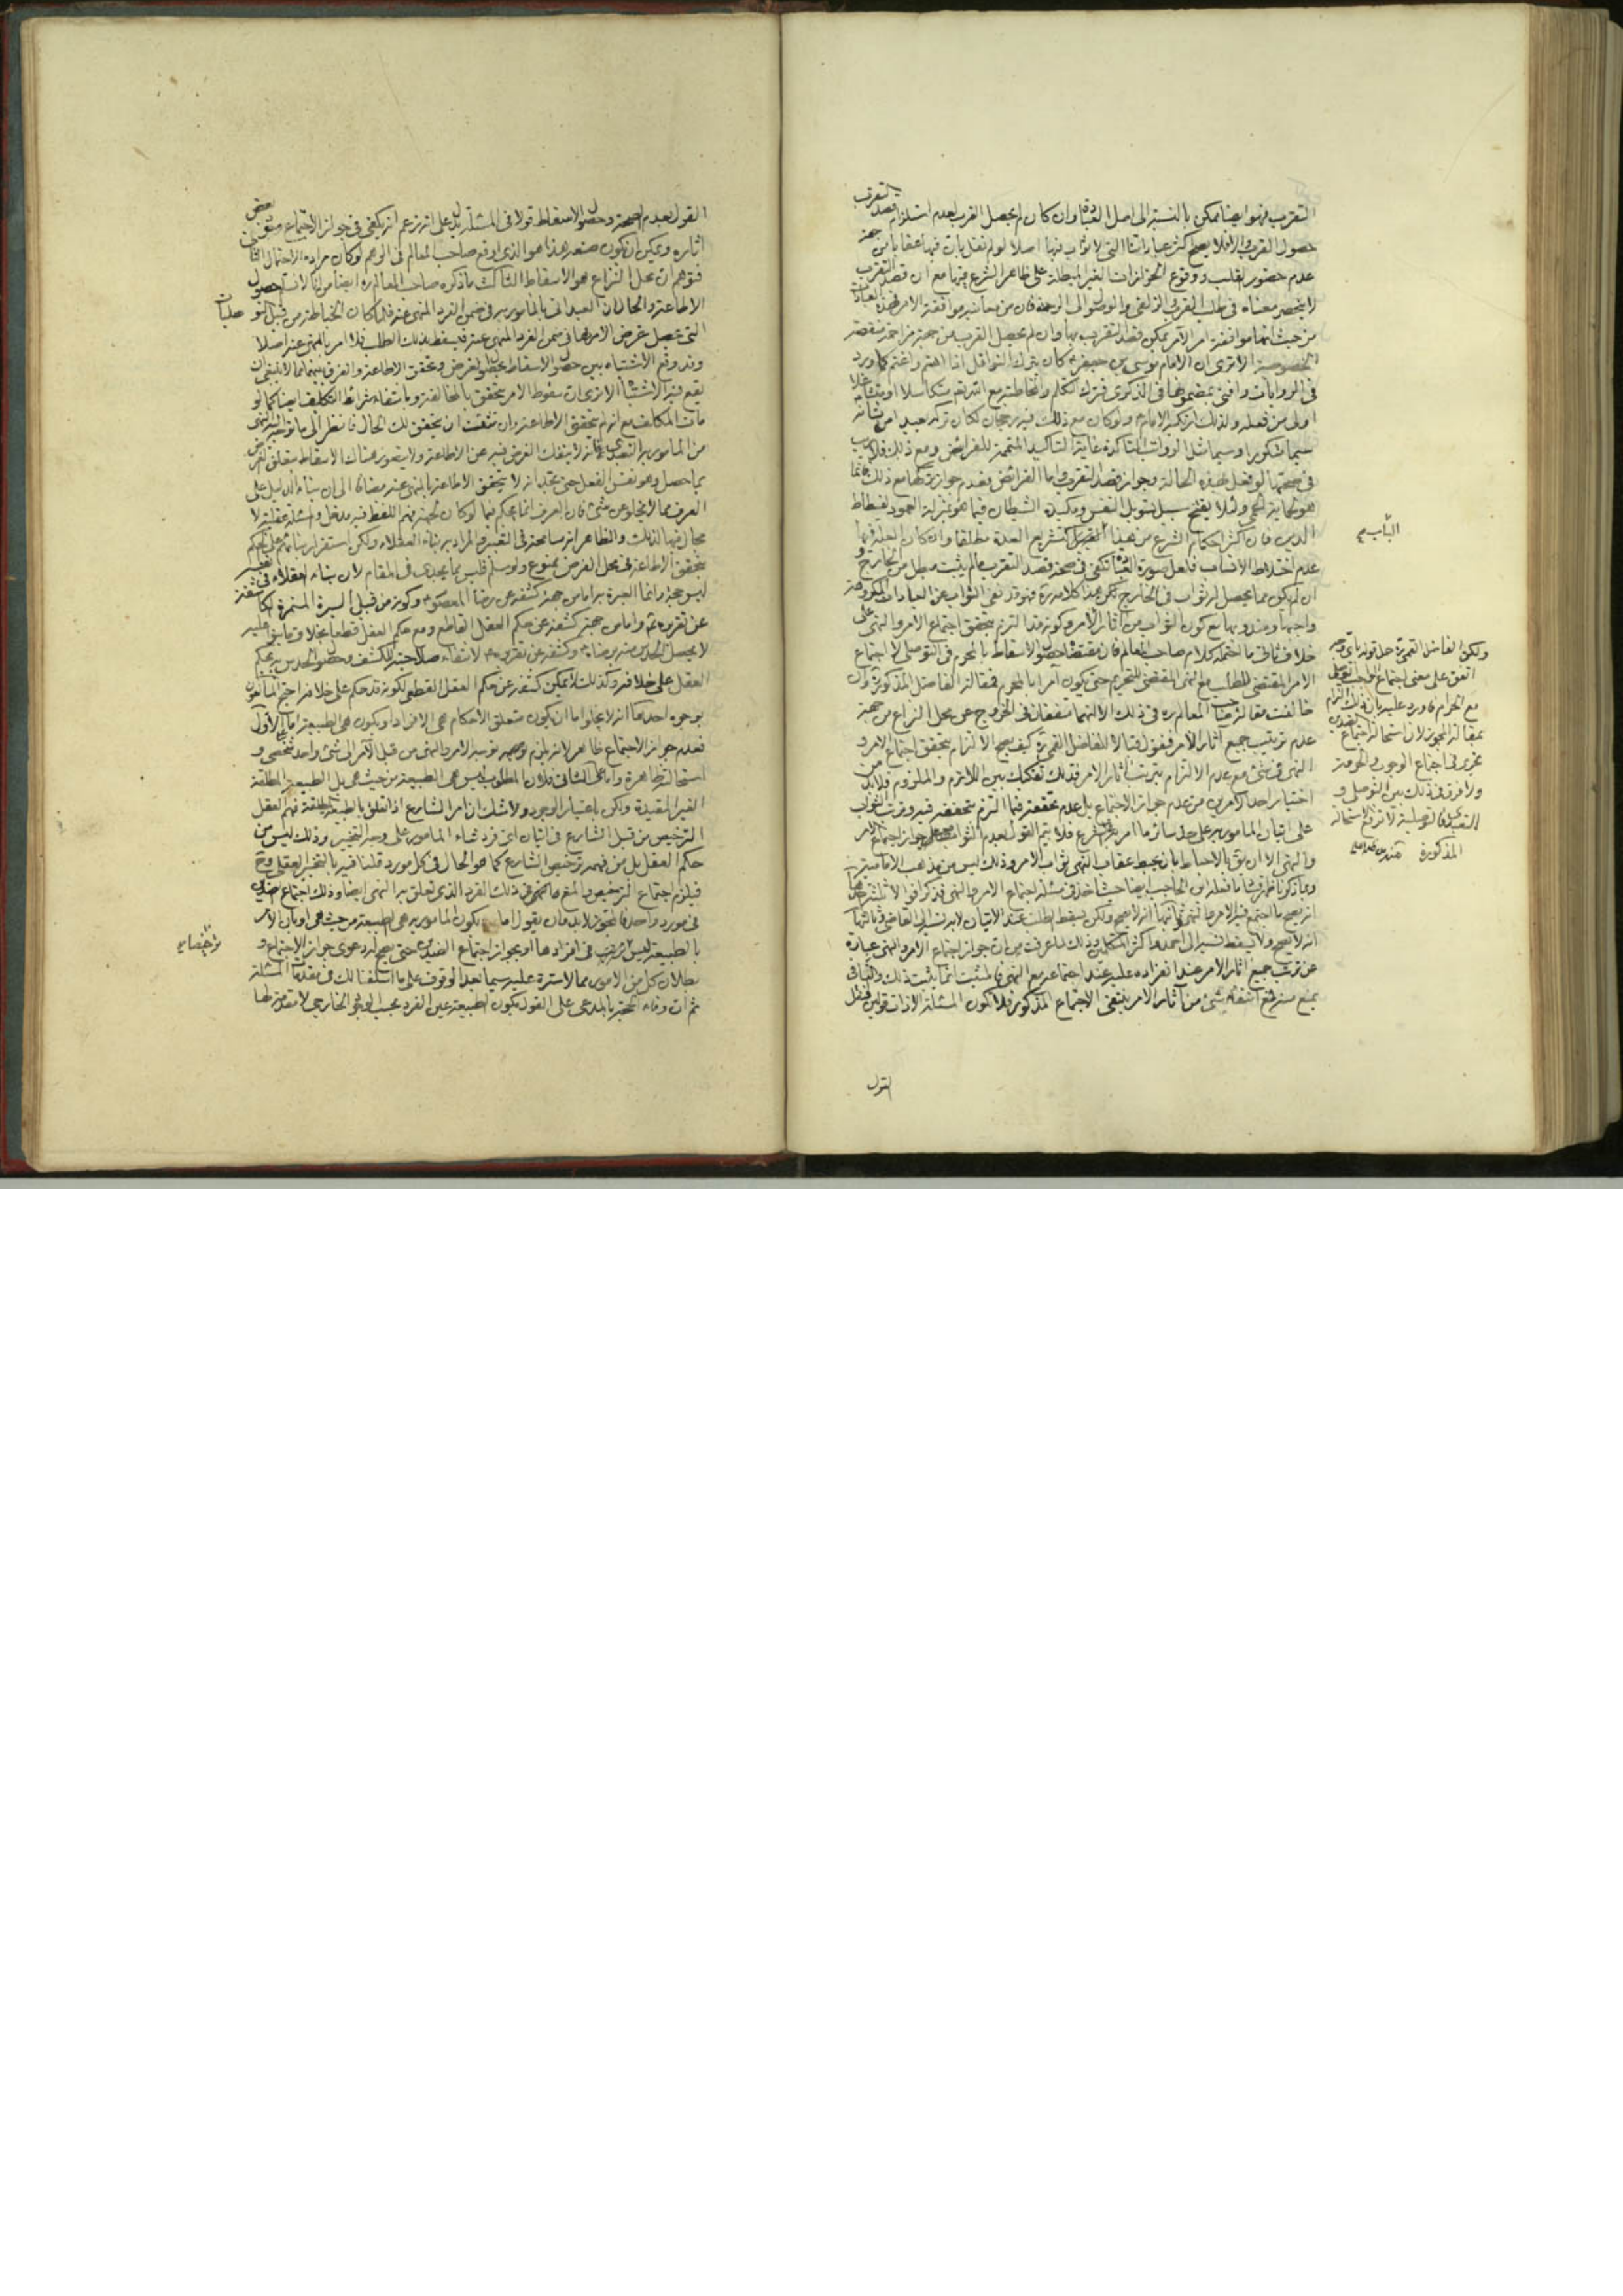 التقرب فهو ايضا ممكن بالنسبة الى اصل العبادة وان كان لم يحصل القرب لعدم استلزام قصد التقرب
حصول القرب والا فلا يصح اكثر عباراتنا التي لا ثواب فيها اصلا لو لم نقل بان فيها عقابا من جهة
عدم حضور القلب ووقوع الحزازات الغير المبطلة على ظاهر الشرع فيها مع ان قصد التقرب
لا ينحصر معناه في طلب القرب والزلفى والوصول الى الرحمة فان من معانيه موافقة الامر فهذه العبادات
من حيث انها موافقة امر الآمر يمكن قصد التقرب بها وان لم يحصل القرب من جهة مزاحمة منقصة
الخصوصية الا ترى ان الامام موسى بن جعفر كان يترك النوافل اذا اهتم واغتم كما ورد
في الروايات وافتى بمضمونها في الذكرى فترك
اولى من فعله ولذلك تركه الامام ولو كان مع ذلك فيه رجحان لكان تركه بعيدا من شأنه
سيما في مثل الرواتب المتأكدة غاية التأكيد المتممة للفرائض ومع ذلك فلا ريب
في صحتها لو فعل بهذه الحالة وجواز قصد التقرب واما الفرائض فعدم جواز تركها مع ذلك فانما
هو لحماية الحمى ولئلا ينفتح سبيل تسويل النفس ومكيدة الشيطان فيما هو بمنزلة العمود لفسطاط
الدين فان اكثر احكام الشرع من هذا القبيل كتشريع العدة مطلقا وان كان العلة فيها
عدم اختلاط الانساب فلعل صورة العبادة تكفي في صحة قصد التقرب ما لم يثبت مبطل من الخارج و
ان لم يكن مما يحصل له ثواب في الخارج لكن هذا كلامه ره فهو قد نفى الثواب عن العبادات المكروهة
واجبها ومندوبها مع كون الثواب من آثار الامر وكونه قد التزم بتحقق اجتماع الامر والنهي على
خلاف ثالث ما احتمله كلام صاحب المعالم فان مقتضاه حصول الاسقاط بالمحرم في التوصلي لا اجتماع
الامر المقتضي للطلب مع النهي المقتضي للتحريم حتى يكون آمرا بالمحرم فمقالة الفاضل المذكورة وان
خالفت مقالة صاحب المعالم ره في ذلك الا انهما متفقان في الخروج عن محل النزاع من جهة
عدم ترتيب جميع آثار الامر فنقول قبالا للفاضل القمي ره كيف يصح الالتزام بتحقق اجتماع الامر و
النهي في شيء مع عدم الالتزام بترتب آثار الامر فذلك تفكيك بين اللازم والملزوم فلا بد من
اختيار احد الامرين من عدم جواز الاجتماع بل عدم تحققه فيما التزم بتحققه فيه وترتب الثواب
على اتيان المأمور به على حد سائر ما امر به الشرع فلا يتم القول بعدم الثواب مع جواز اجتماع الامر
والنهي الا ان يق بالاحباط بان يحبط عقاب النهي ثواب الامر وذلك ليس من مذهب الامامية
وبما ذكرنا ظهر ما فعله ابن الحاجب ايضا حيث اخذ في مسئلة اجتماع الامر والنهي فذكر اقوالا ثلثة احدها
انه يصح ما اجتمع فيه الامر والنهي ثانيها انه لا يصح ولكن يسقط الطلب عند الاتيان لا به نسبه الى القاضي وثالثها
انه لا يصح ولا يسقط نسبه الى احمد واكثر المتكلمين وذلك لما عرفت من ان جواز اجتماع الامر والنهي عبارة
عن ترتب جميع آثار الامر عند انفراده عليه عند اجتماعه مع النهي فالمثبت انما يثبت ذلك والنافي
يمنع منه فمع انتفاء شيء من آثار الامر ينتفي الاجتماع المذكور فلا تكون المسئلة الا ذات قولين فجعل
القول
ولكن الفاضل القمي ره حمل قوله
اتفق على معنى اجتماع الواجب التوصلي
مع الحرام فاورد عليه بان ذلك التزام
بمقالة المجوز لان استحالة اجتماع الضدين
يجري في اجتماع الوجوب والحرمة
ولا فرق في ذلك بين التوصلي و
التعبدي فالتوصلية لا ترفع استحالة
المذكورة
القول بعدم الصحة وحصول الاسقاط قولا في المسئلة يدل على انه زعم انه يكفي في جواز الاجتماع ثبوت بعض
آثاره ويمكن ان يكون صنعه هذا هو الذي اوقع صاحب المعالم في الوهم لو كان مراده الاحتمال الثاني
فتوهم ان محل النزاع هو الاسقاط الثالث ما ذكره صاحب المعالم ره ايضا من انا لا نسلم حصول
الاطاعة والحال ان العبد اتى بالمأمور به في ضمن الفرد المنهي عنه فلما كان الخياطة من قبيل التوصليات
التي تحصل غرض الآمر بها في ضمن الفرد المنهي عنه فيسقط بذلك الطلب فلا امر بالمنهي عنه اصلا
وقد وقع الاشتباه بين حصول الاسقاط بحصول الغرض وتحقق الاطاعة والفرق بينهما مما لا ينبغي ان
يقع فيه الاشتباه الا ترى ان سقوط الامر يتحقق بالمخالفة وبانتفاء شرائط التكليف ايضا كما لو
مات المكلف مع انه لم يتحقق الاطاعة وان شئت ان يتحقق لك الحال فانظر الى ما توجه اليه النهي
من المأمور به التعبدي فانه لا ينفك الغرض فيه عن الاطاعة ولا يتصور هناك الاسقاط بتعلق الغرض
بما حصل وهو نفس الفعل حتى يتخيل انه لا يتحقق الاطاعة بالمنهي عنه مضافا الى ان بناء الدليل على
العرف مما لا يخلو عن شيء فان العرف انما يحكم فيما لو كان لجهة فهم اللفظ فيه مدخل والمسئلة عقلية لا
مجال فيها لذلك والظاهر انه مسامحة في التعبير والمراد به بناء العقلاء ولكن استقرار بنائهم على الحكم
بتحقق الاطاعة في محل الفرض ممنوع ولو سلم فليس مما يجدي في المقام لان بناء العقلاء في نفسه
ليس حجة وانما العبرة به اما من جهة كشفه عن رضا المعصوم وكونه من قبيل السيرة المستمرة الكاشفة
عن تقريره ع واما من جهة كشفه عن حكم العقل القاطع ومع حكم العقل قطعا بخلاف ما بنوا عليه
لا يحصل الحدس منه برضائه وكشفه عن تقريره لانتفاء صلاحيته للكشف وحصول الحدس به بحكم
العقل على خلافه وكذلك لا يمكن كشفه عن حكم العقل القطعي لكونه قد حكم على خلافه احتج المانعون
بوجوه احدها انه لا يخلو اما ان يكون متعلق الاحكام هي الافراد او يكون هي الطبيعة اما على الاول
فعدم جواز الاجتماع ظاهر لانه يلزم توجيه الامر والنهي من قبل الآمر الى شيء واحد شخصي و
استحالته ظاهرة واما على الثاني فلان المطلوب ليس هي الطبيعة من حيث هي بل الطبيعة المطلقة
الغير المقيدة ولكن باعتبار الوجود ولا شك ان امر الشارع اذا تعلق بالطبيعة المطلقة فهم العقل
الترخيص من قبل الشارع في اتيان اي فرد شاء المأمور على وجه التخيير وذلك ليس من
حكم العقل بل من فهمه ترخيص الشارع كما هو الحال في كل مورد قلنا فيه بالتخيير العقلي وح
فيلزم اجتماع الترخيص المفروض في ذلك الفرد الذي تعلق به النهي ايضا وذلك اجتماع ضدين
في مورد واحد فالمجوز لا بد وان يقول اما بكون المأمور به هي الطبيعة من حيث هي او بان الامر
بالطبيعة ليس ترخيصا في افرادها او بجواز اجتماع الضدين حتى يصح له دعوى جواز الاجتماع و
بطلان كل من الامور مما لا سترة عليه سيما بعد الوقوف على ما اسلفنا لك في مقدمات المسئلة
ثم ان وفاء الحجة بالمدعى على القول بكون الطبيعة عين الفرد بحسب الوجود الخارجي لا مقدمة لها